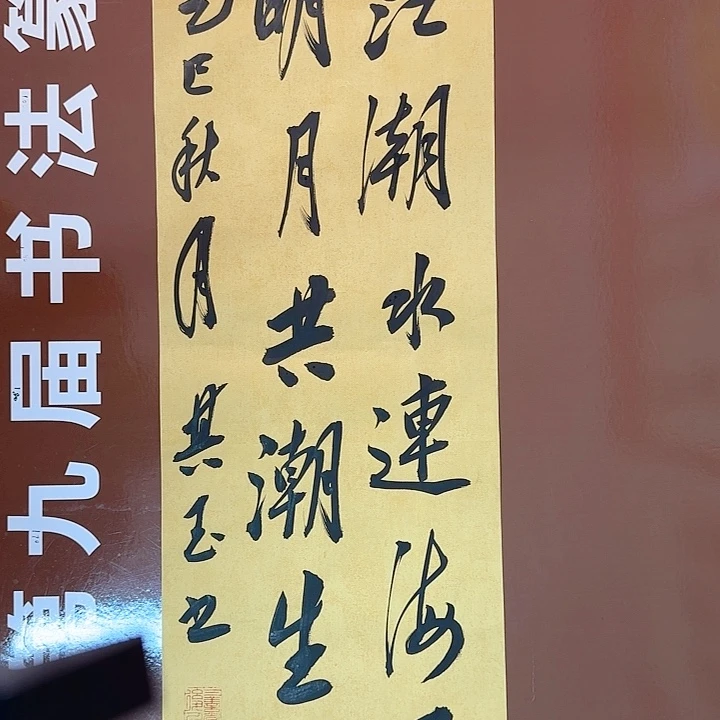 江潮水連海
明月共潮生
乙巳秋月其玉书
九届书法篆